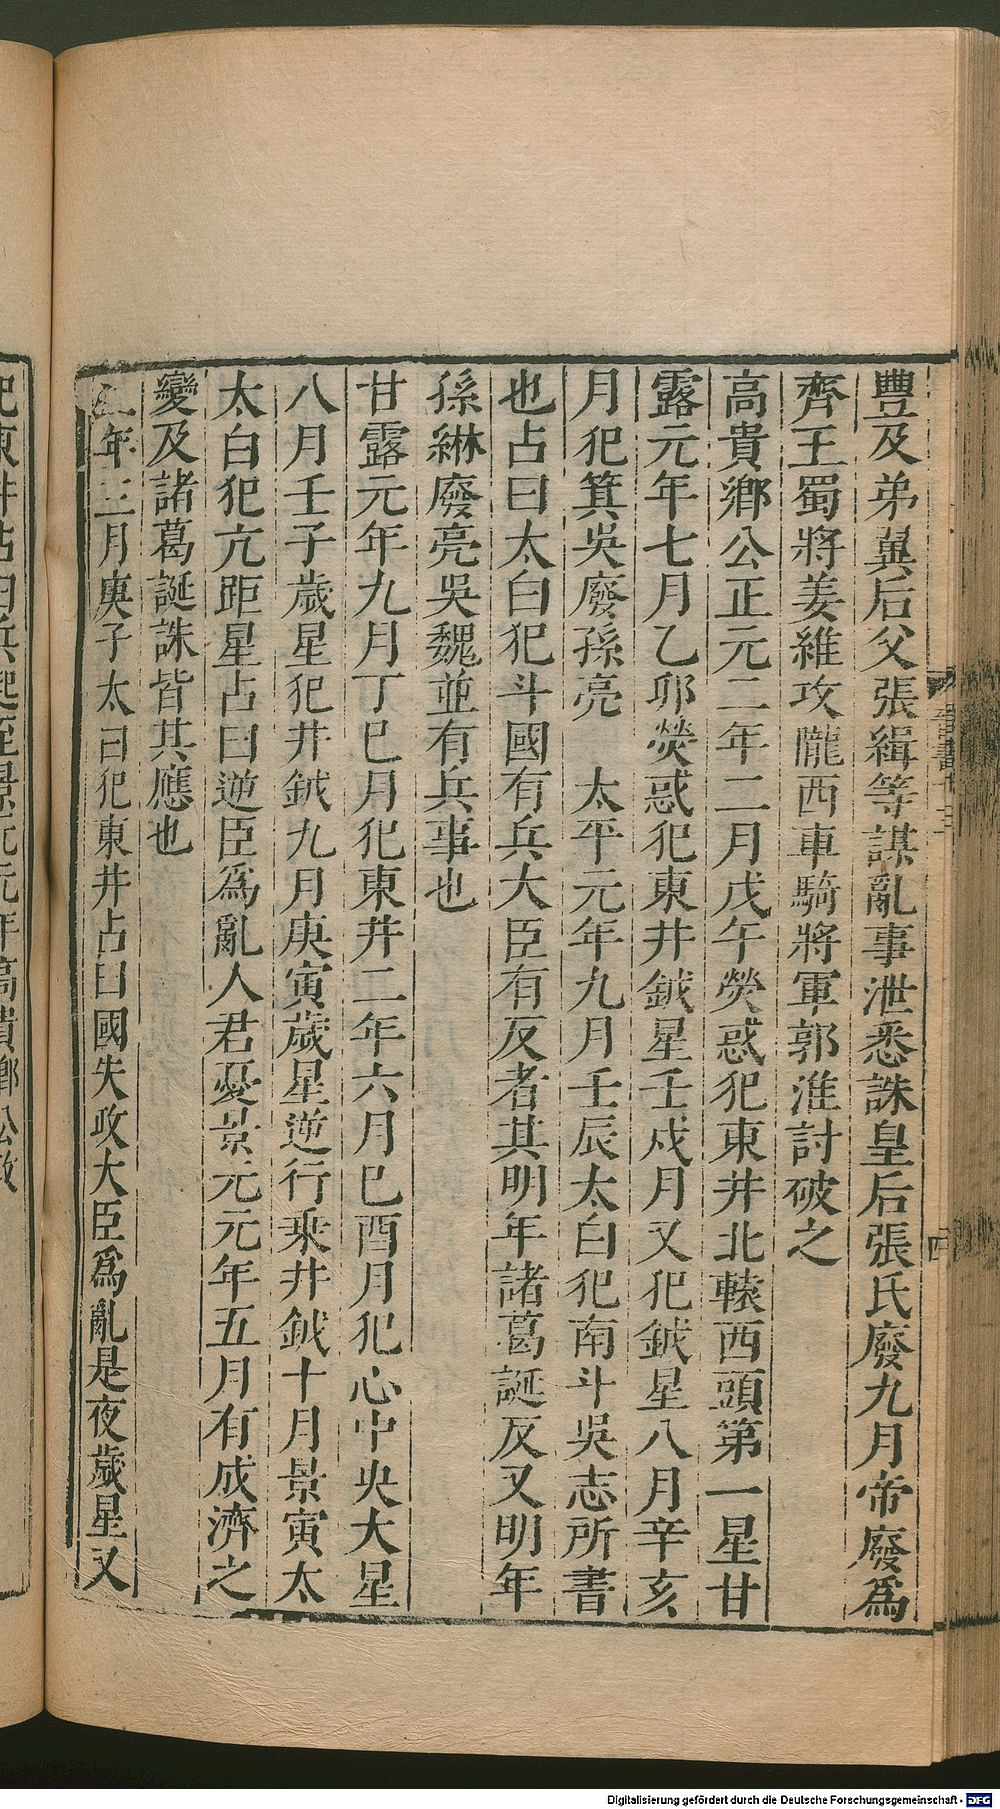 豐及弟翼后父張緝等謀亂事泄悉誅皇后張氏廢九月帝廢爲
齊王蜀將姜維攻隴西車騎將軍郭淮討破之
高貴鄉公正元二年二月戊午熒惑犯東井北轅西頭第一星甘
露元年七月乙卯熒惑犯東井鉞星壬戌月又犯鉞星八月辛亥
月犯箕吳廢孫亮 太平元年九月壬辰太白犯南斗吳志所書
也占曰太白犯斗國有兵大臣有反者其明年諸葛誕反又明年
孫綝廢亮吳魏並有兵事也
甘露元年九月丁巳月犯東井二年六月巳酉月犯心中央大星
八月壬子歲星犯井鉞九月庚寅歲星逆行乘井鉞十月景寅太
太白犯亢距星占曰逆臣爲亂人君憂景元元年五月有成濟之
變及諸葛誕誅皆其應也
三年三月庚子太白犯東井占曰國失政大臣爲亂是夜歲星又
犯東井占曰兵起至景元元年高貴鄉公敗
四
Digitalisierung gefördert durch die Deutsche Forschungsgemeinschaft - DFG